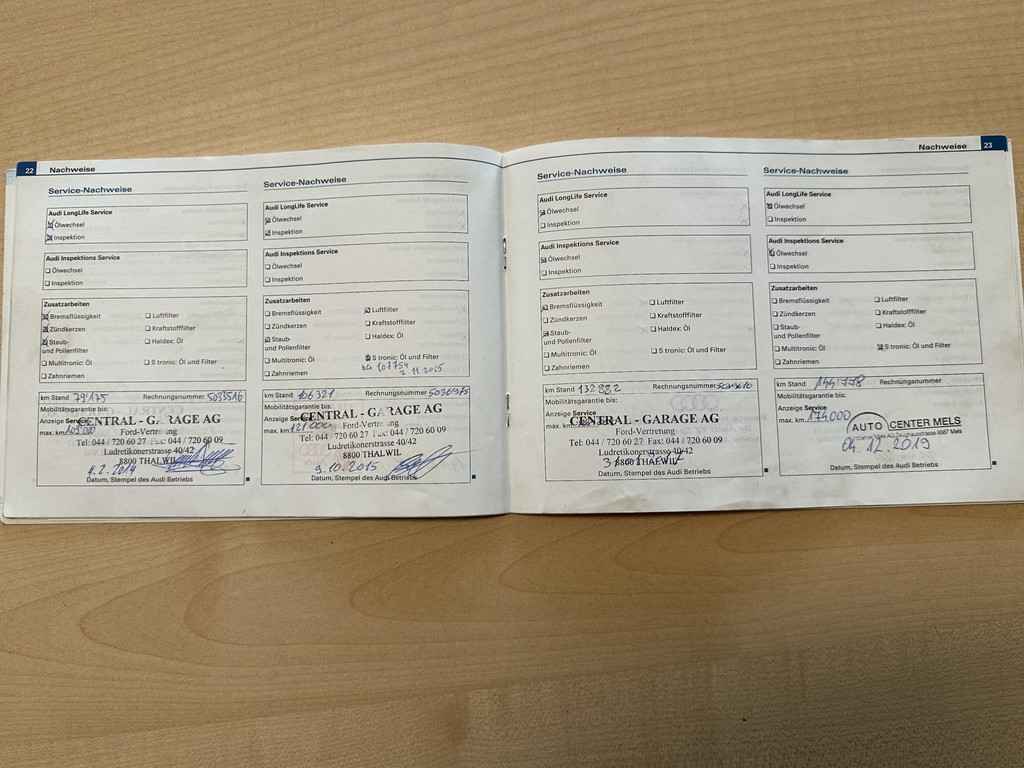 22 Nachweise
Service-Nachweise
Audi LongLife Service
Ölwechsel
Inspektion
Audi Inspektions Service
Ölwechsel
Inspektion
Zusatzarbeiten
Bremsflüssigkeit Luftfilter
Zündkerzen Kraftstofffilter
Staub- Haldex: Öl
und Pollenfilter
Multitronic: Öl S tronic: Öl und Filter
Zahnriemen
km Stand 79'175 Rechnungsnummer 5033516
Mobilitätsgarantie bis:
Anzeige Service
CENTRAL - GARAGE AG
max. km
Ford-Vertretung
Tel: 044 / 720 60 27 Fax: 044 / 720 60 09
Ludretikonerstrasse 40/42
8800 THALWIL
4.2.2014
Datum, Stempel des Audi Betriebs
Service-Nachweise
Audi LongLife Service
Ölwechsel
Inspektion
Audi Inspektions Service
Ölwechsel
Inspektion
Zusatzarbeiten
Bremsflüssigkeit Luftfilter
Zündkerzen Kraftstofffilter
Staub- Haldex: Öl
und Pollenfilter
Multitronic: Öl S tronic: Öl und Filter
107754
Zahnriemen 2.11.2015
km Stand 106321 Rechnungsnummer
Mobilitätsgarantie bis:
Anzeige Service
CENTRAL - GARAGE AG
max. km 121000
Ford-Vertretung
Tel: 044 / 720 60 27 Fax: 044 / 720 60 09
Ludretikonerstrasse 40/42
8800 THALWIL
9.10.2015
Datum, Stempel des Audi Betriebs
Nachweise 23
Service-Nachweise
Audi LongLife Service
Ölwechsel
Inspektion
Audi Inspektions Service
Ölwechsel
Inspektion
Zusatzarbeiten
Bremsflüssigkeit Luftfilter
Zündkerzen Kraftstofffilter
Staub- Haldex: Öl
und Pollenfilter
Multitronic: Öl S tronic: Öl und Filter
Zahnriemen
km Stand 132882 Rechnungsnummer
Mobilitätsgarantie bis:
Anzeige Service
CENTRAL - GARAGE AG
max. km
Ford-Vertretung
Tel: 044 / 720 60 27 Fax: 044 / 720 60 09
Ludretikonerstrasse 40/42
8800 THALWIL
Datum, Stempel des Audi Betriebs
Service-Nachweise
Audi LongLife Service
Ölwechsel
Inspektion
Audi Inspektions Service
Ölwechsel
Inspektion
Zusatzarbeiten
Bremsflüssigkeit Luftfilter
Zündkerzen Kraftstofffilter
Staub- Haldex: Öl
und Pollenfilter
Multitronic: Öl S tronic: Öl und Filter
Zahnriemen
km Stand Rechnungsnummer
Mobilitätsgarantie bis:
Anzeige Service
max. km 174.000
AUTO CENTER MELS
04.12.2019
Datum, Stempel des Audi Betriebs